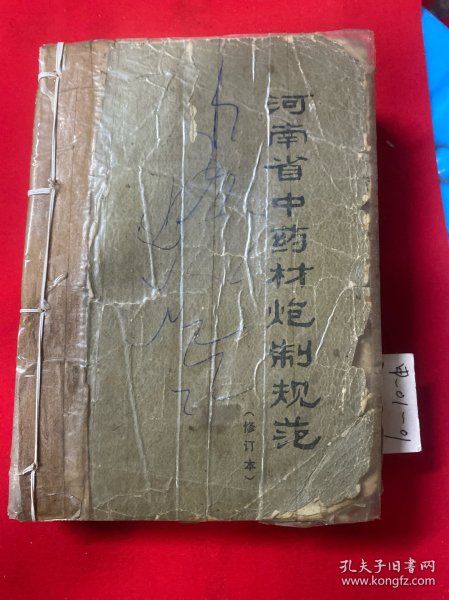 河南省中药材炮制规范
（修订本）
孔夫子旧书网
www.kongfz.com